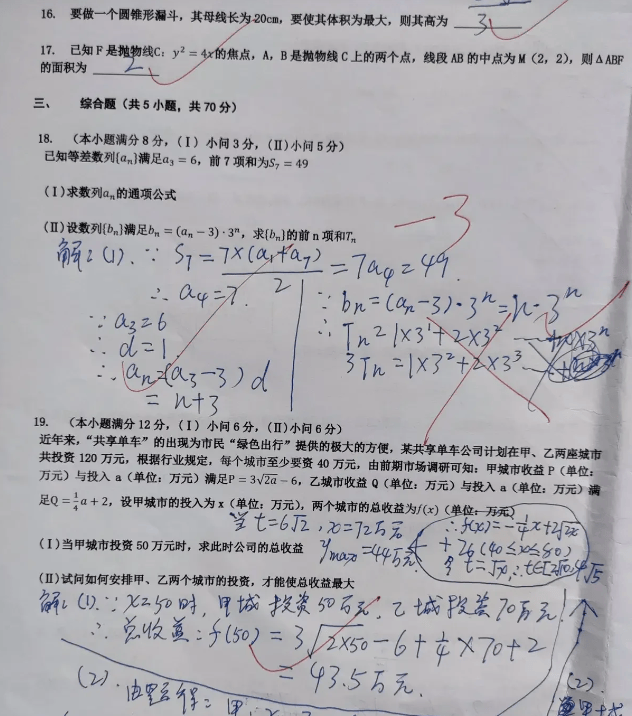 16. 要做一个圆锥形漏斗，其母线长为20cm，要使其体积为最大，则其高为
3
17. 已知F是抛物线C：y²=4x的焦点，A，B是抛物线C上的两个点，线段AB的中点为M（2，2），则ΔABF
的面积为 2
三、 综合题（共5小题，共70分）
18. （本小题满分8分，（Ⅰ）小问3分，（Ⅱ）小问5分）
已知等差数列{aₙ}满足a₃=6，前7项和为S₇=49
（Ⅰ）求数列aₙ的通项公式
-3
（Ⅱ）设数列{bₙ}满足bₙ=(aₙ-3)·3ⁿ，求{bₙ}的前n项和Tₙ
解：(1). ∵ S₇ = 7×(a₁+a₇)/2 = 7a₄ = 49.
∴ a₄=7.
∵ a₃=6
∴ d=1
∴ aₙ=(a₃-3)d
= n+3
∵ bₙ=(aₙ-3)·3ⁿ=n·3ⁿ
∴ Tₙ=1×3¹+2×3²
+n×3ⁿ
3Tₙ=1×3²+2×3³
19. （本小题满分12分，（Ⅰ）小问6分，（Ⅱ）小问6分）
近年来，“共享单车”的出现为市民“绿色出行”提供的极大的方便，某共享单车公司计划在甲、乙两座城市
共投资120万元，根据行业规定，每个城市至少要投资40万元，由前期市场调研可知：甲城市收益P（单位：
万元）与投入a（单位：万元）满足P=3√2a-6，乙城市收益Q（单位：万元）与投入a（单位：万元）满
足Q=¼a+2，设甲城市的投入为x（单位：万元），两个城市的总收益为f(x)（单位：万元）
当t=6√2，x=72万元
∴f(x)=-¼x+3√2x
（Ⅰ）当甲城市投资50万元时，求此时公司的总收益
yₘₐₓ=44万元
+26(40≤x≤80)
令t=√x，∴t∈[2√10,4√5
（Ⅱ）试问如何安排甲、乙两个城市的投资，才能使总收益最大
解：(1)∵x=50时，甲城投资50万元，乙城投资70万元
∴总收益：f(50)=3√2×50-6+¼×70+2
= 43.5万元.
(2).
(2).